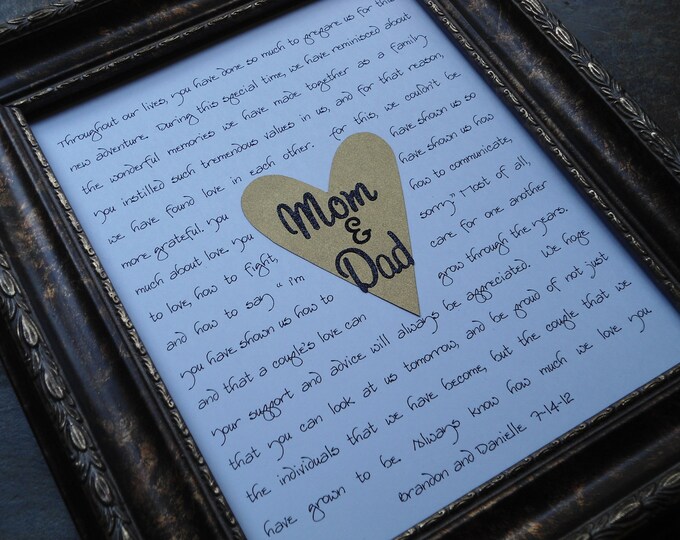 Throughout our lives, you have done so much to prepare us for this
new adventure. During this special time, we have reminisced about
the wonderful memories we have made together as a family.
you instilled such tremendous values in us, and for that reason,
we have found love in each other. For this, we couldn't be
more grateful. you have shown us so
much about love. you have shown us how
to love, how to fight, how to communicate,
and how to say "i'm sorry." Most of all,
you have shown us how to care for one another
and that a couple's love can grow through the years.
your support and advice will always be appreciated. We hope
that you can look at us tomorrow, and be proud of not just
the individuals that we have become, but the couple that we
have grown to be. Always know how much we love you
Brandon and Danielle 7-14-12
Mom
&
Dad